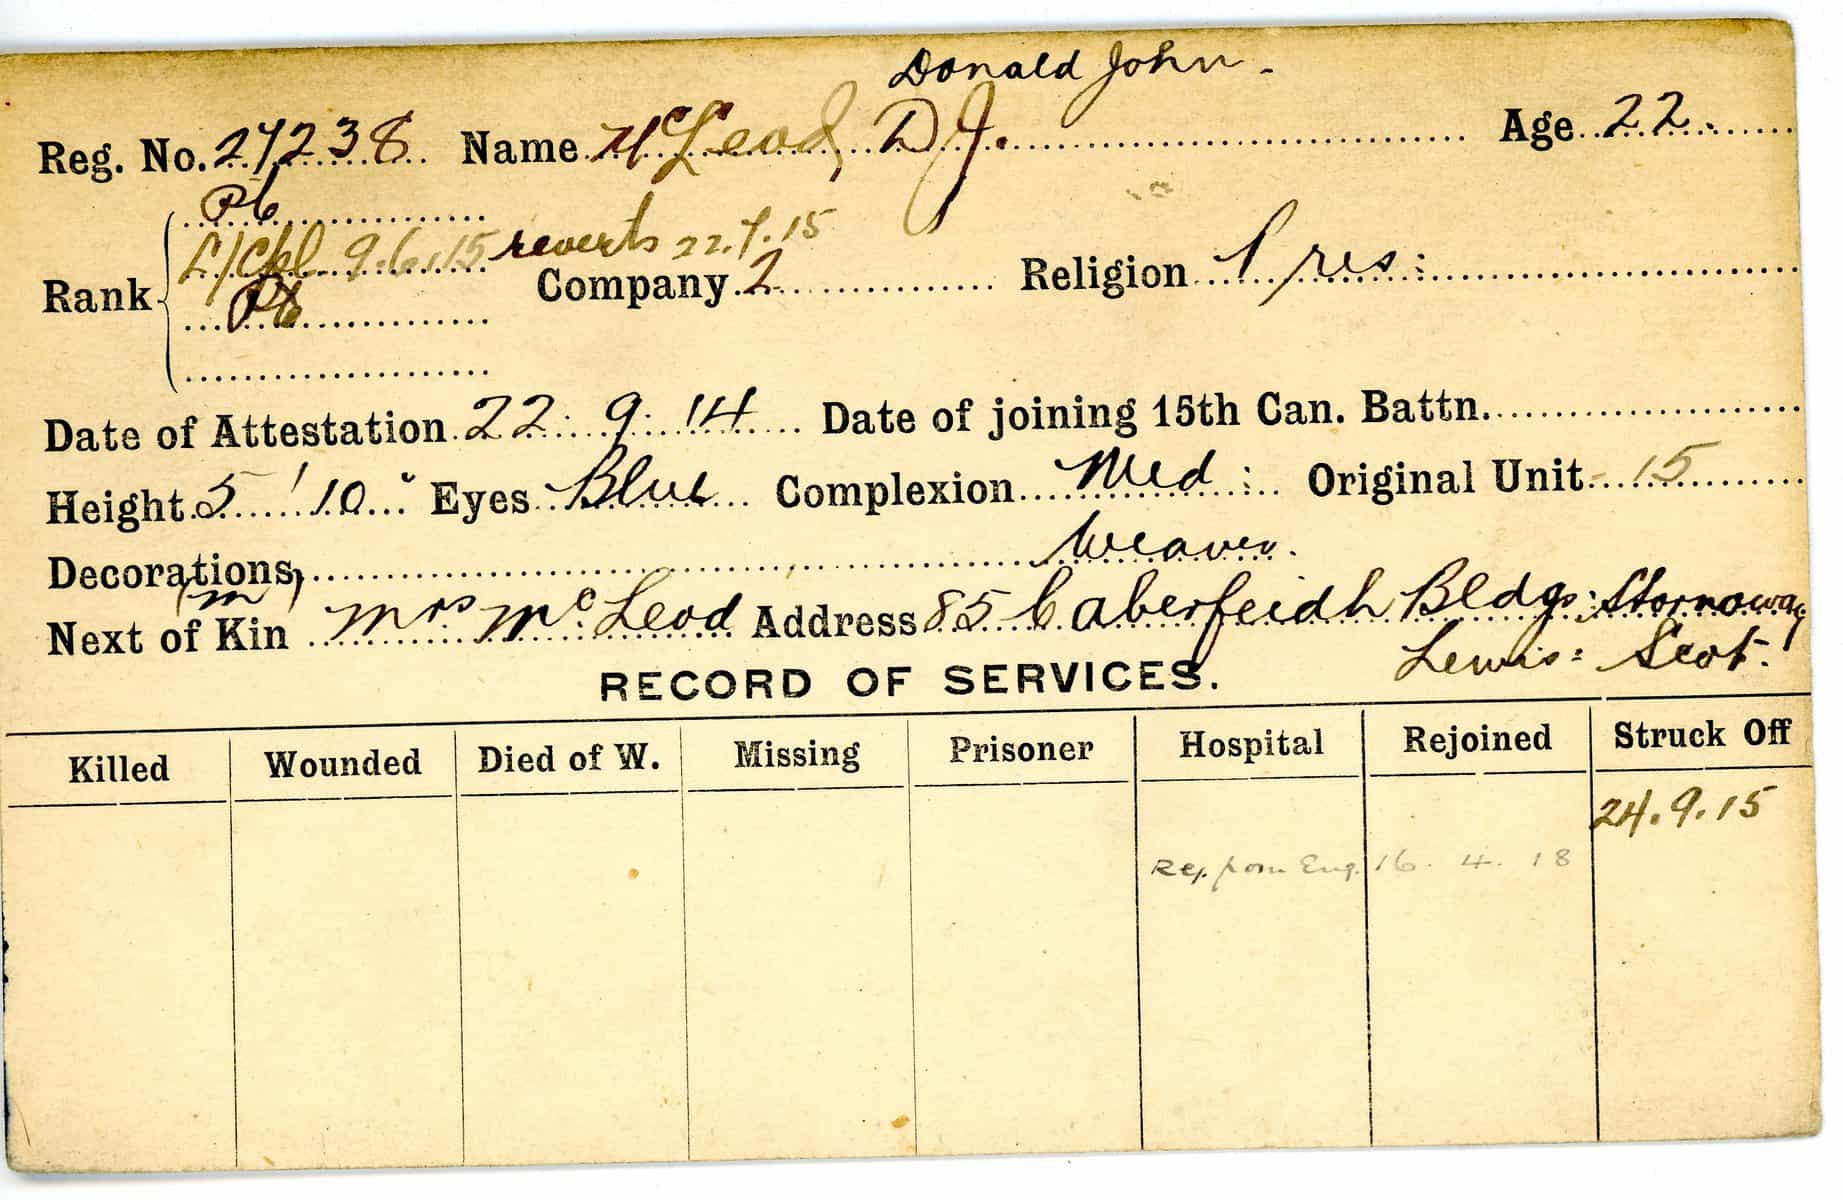 Donald John.
Reg. No. 27238 Name McLeod, D J. Age 22.
Pte
L/Cpl 9.6.15 reverts 22.7.15
Rank Pte Company 2 Religion Pres:
Date of Attestation 22. 9. 14 Date of joining 15th Can. Battn.
Height 5' 10" Eyes Blue Complexion Med: Original Unit 15
Decorations Weaver.
(m)
Next of Kin Mrs McLeod Address 85 Caberfeidh Bldgs: Stornoway
Lewis: Scot.
RECORD OF SERVICES.
Killed Wounded Died of W. Missing Prisoner Hospital Rejoined Struck Off
24.9.15
Rej. from Eng. 16. 4. 18